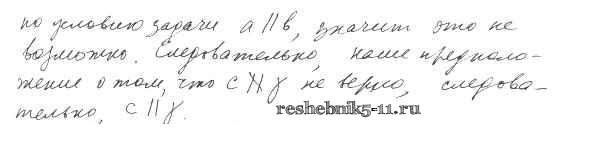 по условию задачи a || b, значит это не
возможно. Следовательно, наше предполо-
жение о том, что c ∦ γ не верно, следова-
тельно, c || γ.
reshebnik5-11.ru